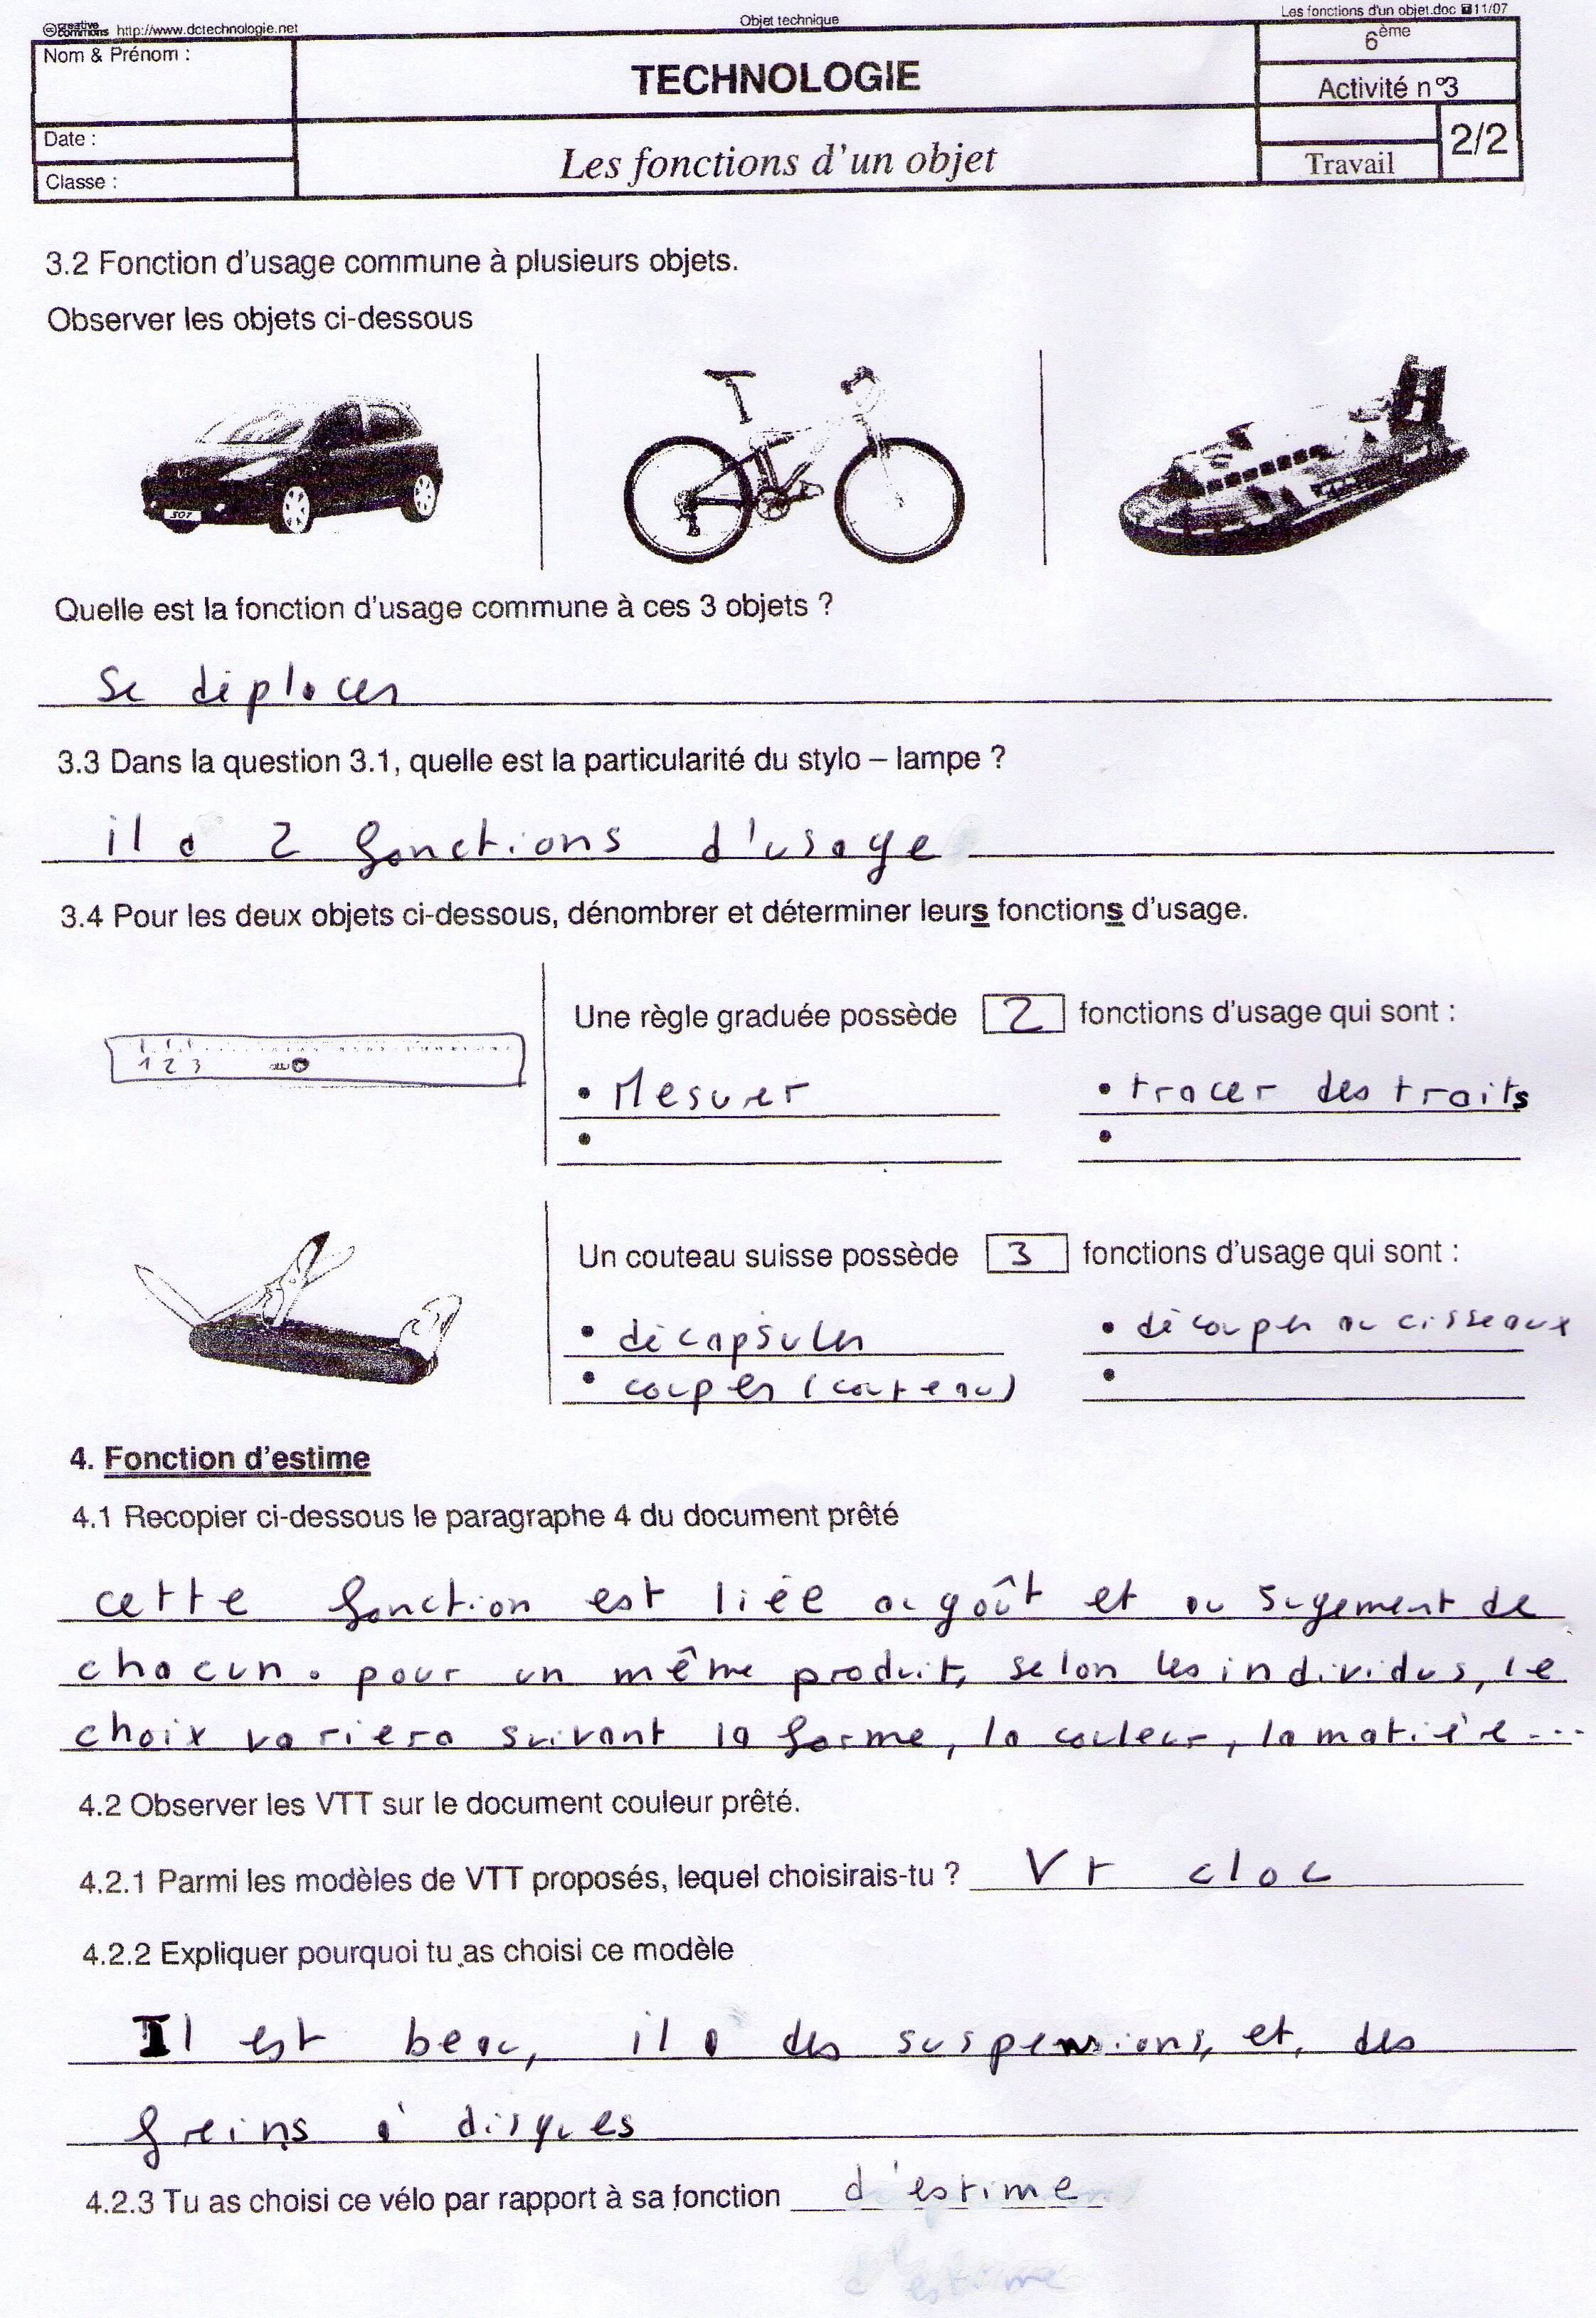 creative commons http://www.dctechnologie.net
Objet technique
Les fonctions d'un objet.doc 11/07
Nom & Prénom :
TECHNOLOGIE
6ème
Activité n°3
Date :
Classe :
Les fonctions d'un objet
Travail
2/2
3.2 Fonction d'usage commune à plusieurs objets.
Observer les objets ci-dessous
307
Quelle est la fonction d'usage commune à ces 3 objets ?
Se déplacer
3.3 Dans la question 3.1, quelle est la particularité du stylo – lampe ?
il a 2 fonctions d'usage
3.4 Pour les deux objets ci-dessous, dénombrer et déterminer leurs fonctions d'usage.
Une règle graduée possède 2 fonctions d'usage qui sont :
1 2 3
• Mesurer • tracer des traits
Un couteau suisse possède 3 fonctions d'usage qui sont :
• décapsuler • découper au cisseaux
• couper (couteau)
4. Fonction d'estime
4.1 Recopier ci-dessous le paragraphe 4 du document prêté
cette fonction est liée au goût et au sugement de
chacun. pour un même produit, selon les individus, le
choix variera suivant la forme, la couleur, la matière...
4.2 Observer les VTT sur le document couleur prêté.
4.2.1 Parmi les modèles de VTT proposés, lequel choisirais-tu ? Vt cloc
4.2.2 Expliquer pourquoi tu as choisi ce modèle
Il est beau, il a des suspensions, et, des
freins à disques
4.2.3 Tu as choisi ce vélo par rapport à sa fonction d'estime
d'estime